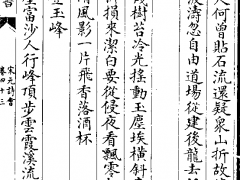 人何曾貼石流還疑衆山折故
波濤忽自由道場從建後龍去
樹苔冷光搖動玉塵埃橫斜
損來潔白要從侵夜看飄零
風影一片飛香落酒杯
玉峰
當沙人行峰頂步雲霞溪流
宋元詩會
卷四十三